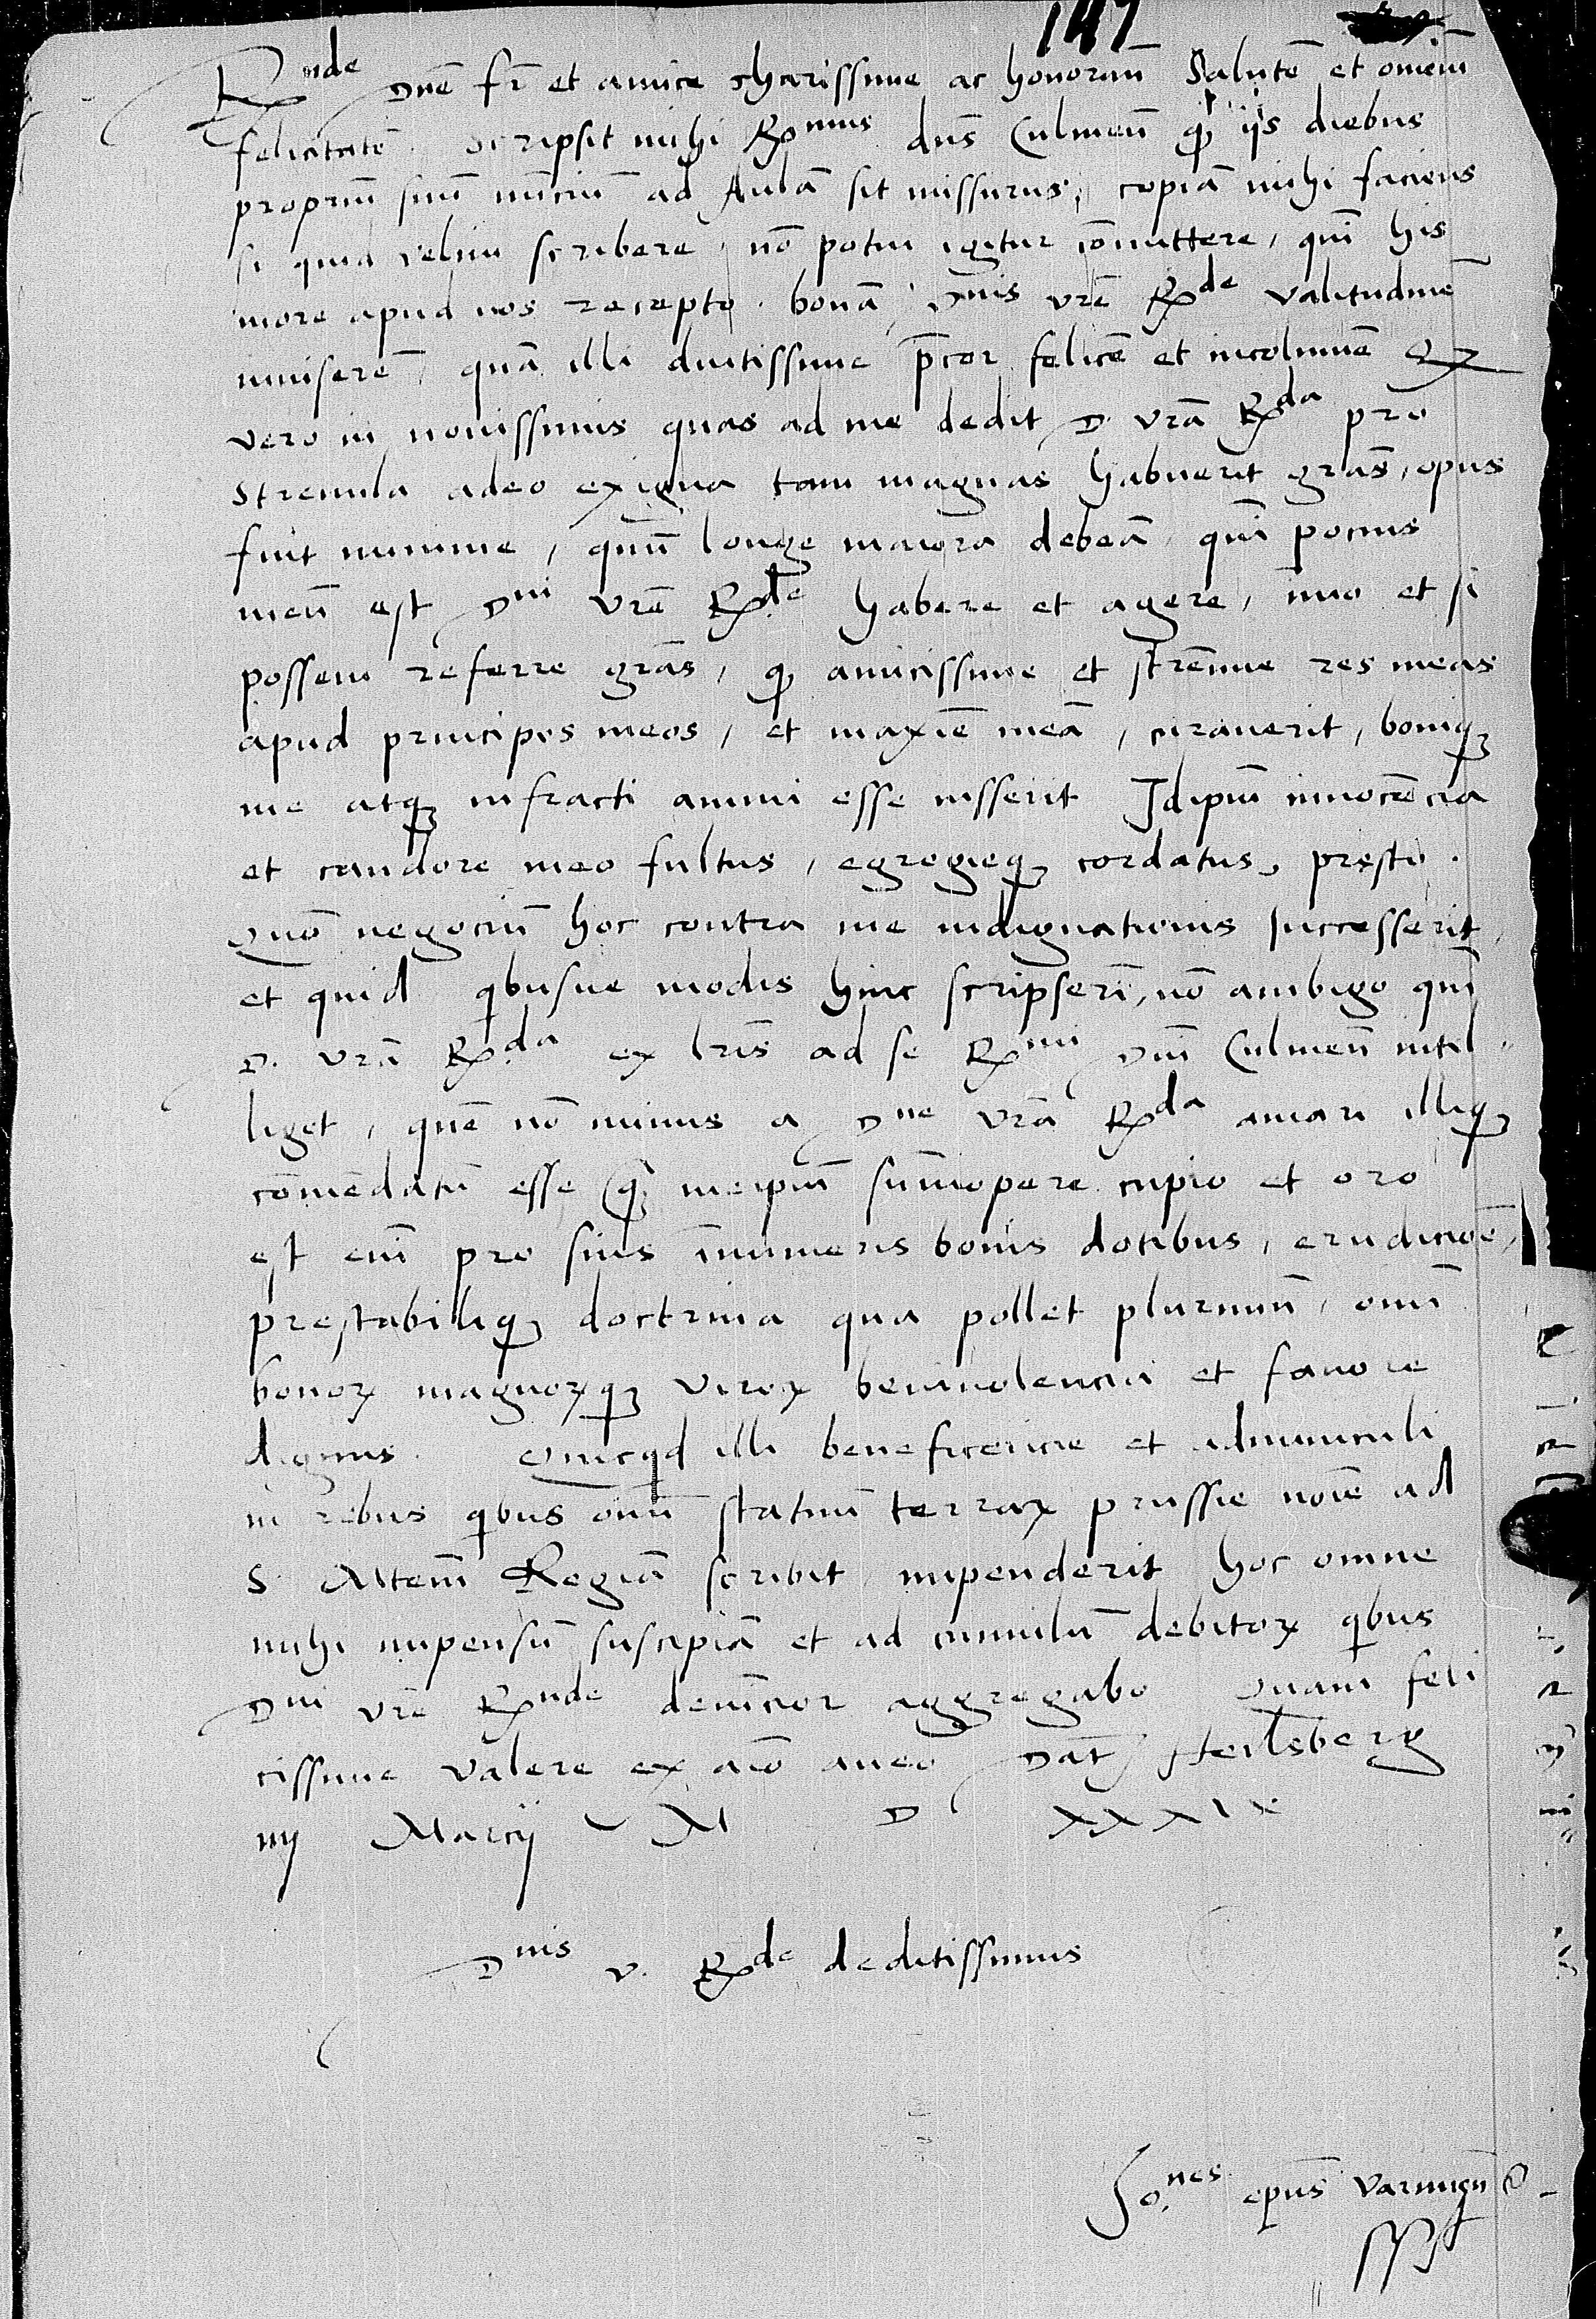 147
Rnde Dne fr et amice charissime ac honoran Salute et omem
felicitate. Scripsit mihi Rmus dns Culmen q iis diebus
propriu suu nunciu ad Aula sit missurus, copia mihi faciens
si quid velim scribere, no potui igitur comittere, quin his
more apud nos recepto. bona Dnis vre Rde valitudine
inuisere, qua illi diutissime pcor felice et incolume Q
vero in nouissimis quas ad me dedit D. vra Rda pro
strenula adeo exigua tam magnas habuerit gras, opus
fuit minime, quu longe maiora debea, qui pocius
meu est Dni vre Rde habere et agere, imo et si
possem referre gras, q amicissime et strenue res meas
apud principes meos, et maxie mea, curauerit, boniq
me atq infracti animi esse iusserit Idipm innocencia
et candore meo fultus, egregieq cordatus, presto.
Quo negociu hoc contra me indignationis successerit,
et quid qbusue modis hinc scripseri, no ambigo quin
D. vra Rda ex lris ad se Rmi Dni Culmen intel-
liget, que no minus a Dne vra Rda amari illiq
comedatu esse q meipm sumopere cupio et oro
est eni pro suis inumeris bonis dotibus, erudicioe,
prestabiliq doctrina qua pollet plurimu, omi
bonor magnorq viror beniuolencia et fauore
dignus. Quicqd illi beneficencie et adminiculi
in rebus qbus oniu statuu terrar prussie noie ad
S. Mtem Regia scribit impenderit hoc omne
mihi impensu suscipia et ad cumulu debitor qbus
Dni vre Rnde deuincior aggregabo Quam feli
cissime valere ex aio aueo Dat Heilsberg
iiij Marcij M D XXXIX
Dnis v. Rde deditissimus
Jo.nes epus varmien
sspt